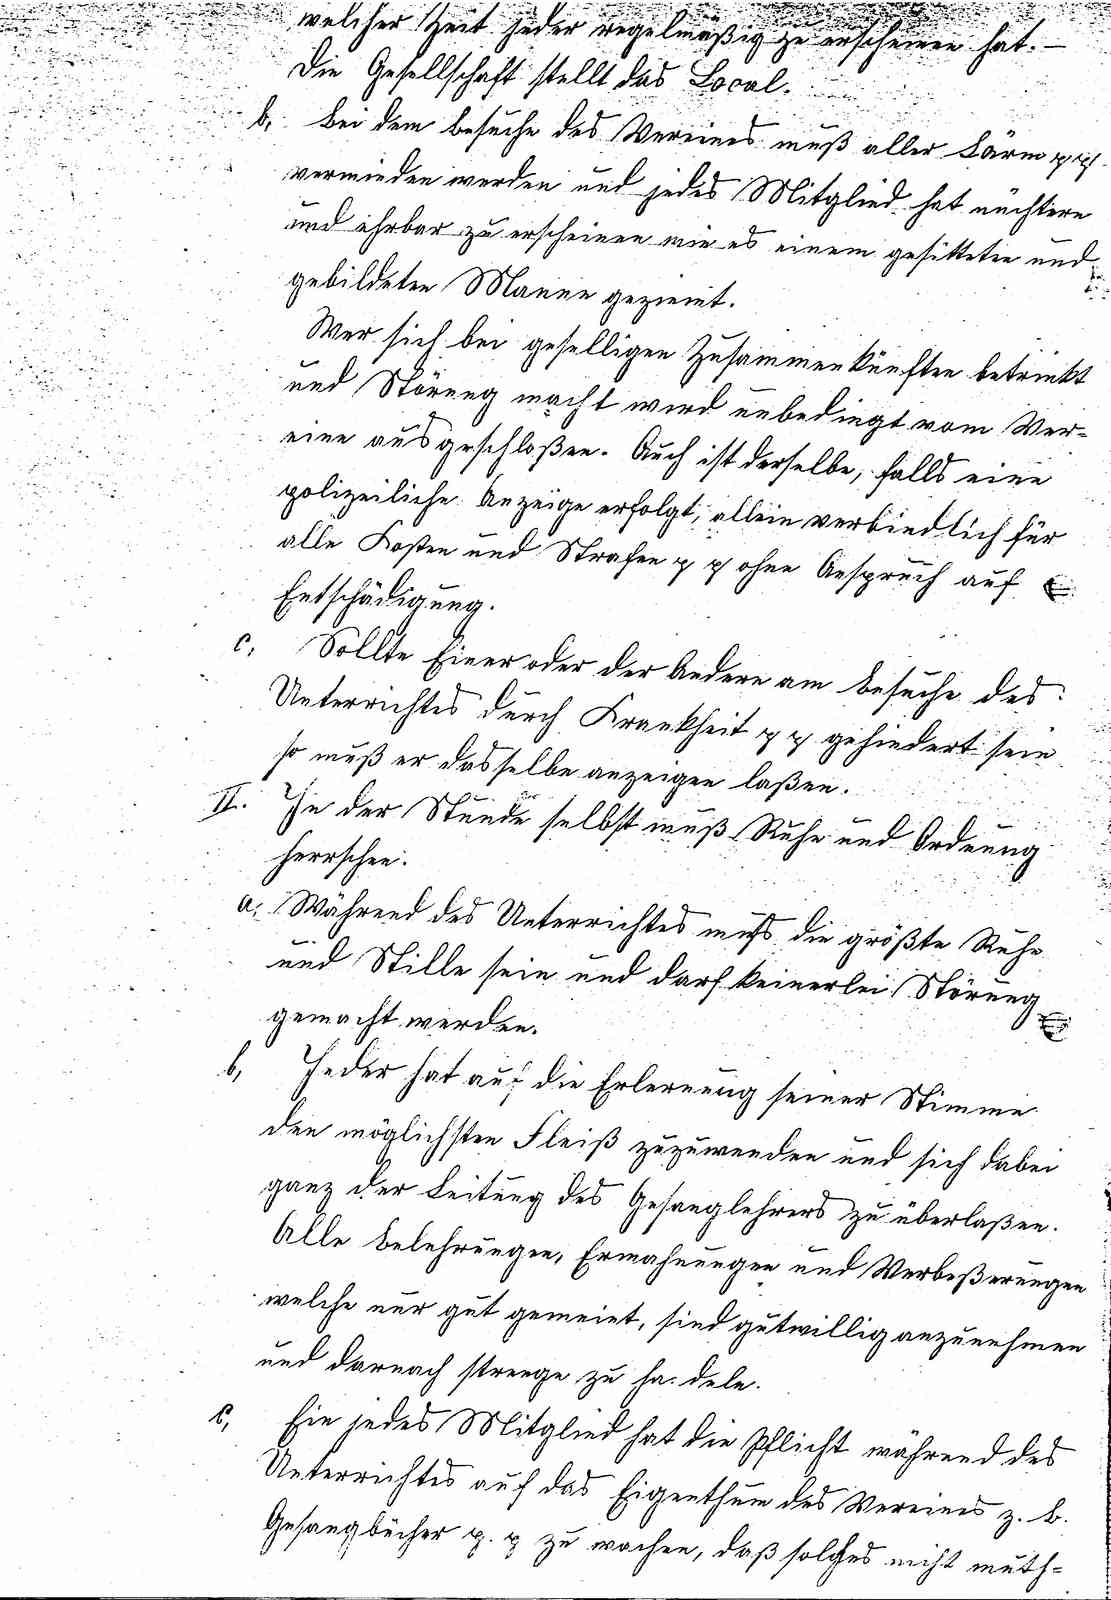 welcher Zeit jeder regelmäßig zu erscheinen hat. –
Die Gesellschaft stellt das Local.
b, Bei dem Besuche des Vereines muß aller Lärm pp.
vermieden werden und jedes Mitglied hat nüchtern
und ehrbar zu erscheinen wie es einem gesitteten und
gebildeten Manne geziemt.
Wer sich bei geselligen Zusammenkünften betrinkt
und Störung macht wird unbedingt vom Ver-
eine ausgeschloßen. Auch ist derselbe, falls eine
polizeiliche Anzeige erfolgt, allein verbindlich für
alle Kosten und Strafen p p ohne Anspruch auf
Entschädigung.
c, Sollte Einer oder der Andere am Besuche des
Unterrichtes durch Krankheit p p gehindert sein
so muß er dasselbe anzeigen laßen.
II. In der Stunde selbst muß Ruhe und Ordnung
herrschen.
a, Während des Unterrichtes muß die größte Ruhe
und Stille sein und darf keinerlei Störung
gemacht werden.
b, Jeder hat auf die Erlernung seiner Stimme
den möglichsten Fleiß zuzuwenden und sich dabei
ganz der Leitung des Gesanglehrers zu überlaßen.
Alle Belehrungen, Ermahnungen und Verbeßerungen
welche nur gut gemeint, sind gutwillig anzunehmen
und darnach strenge zu handeln.
c, Ein jedes Mitglied hat die Pflicht während des
Unterrichtes auf das Eigenthum des Vereines z. B.
Gesangbücher p. p zu wachen, daß solches nicht muth=